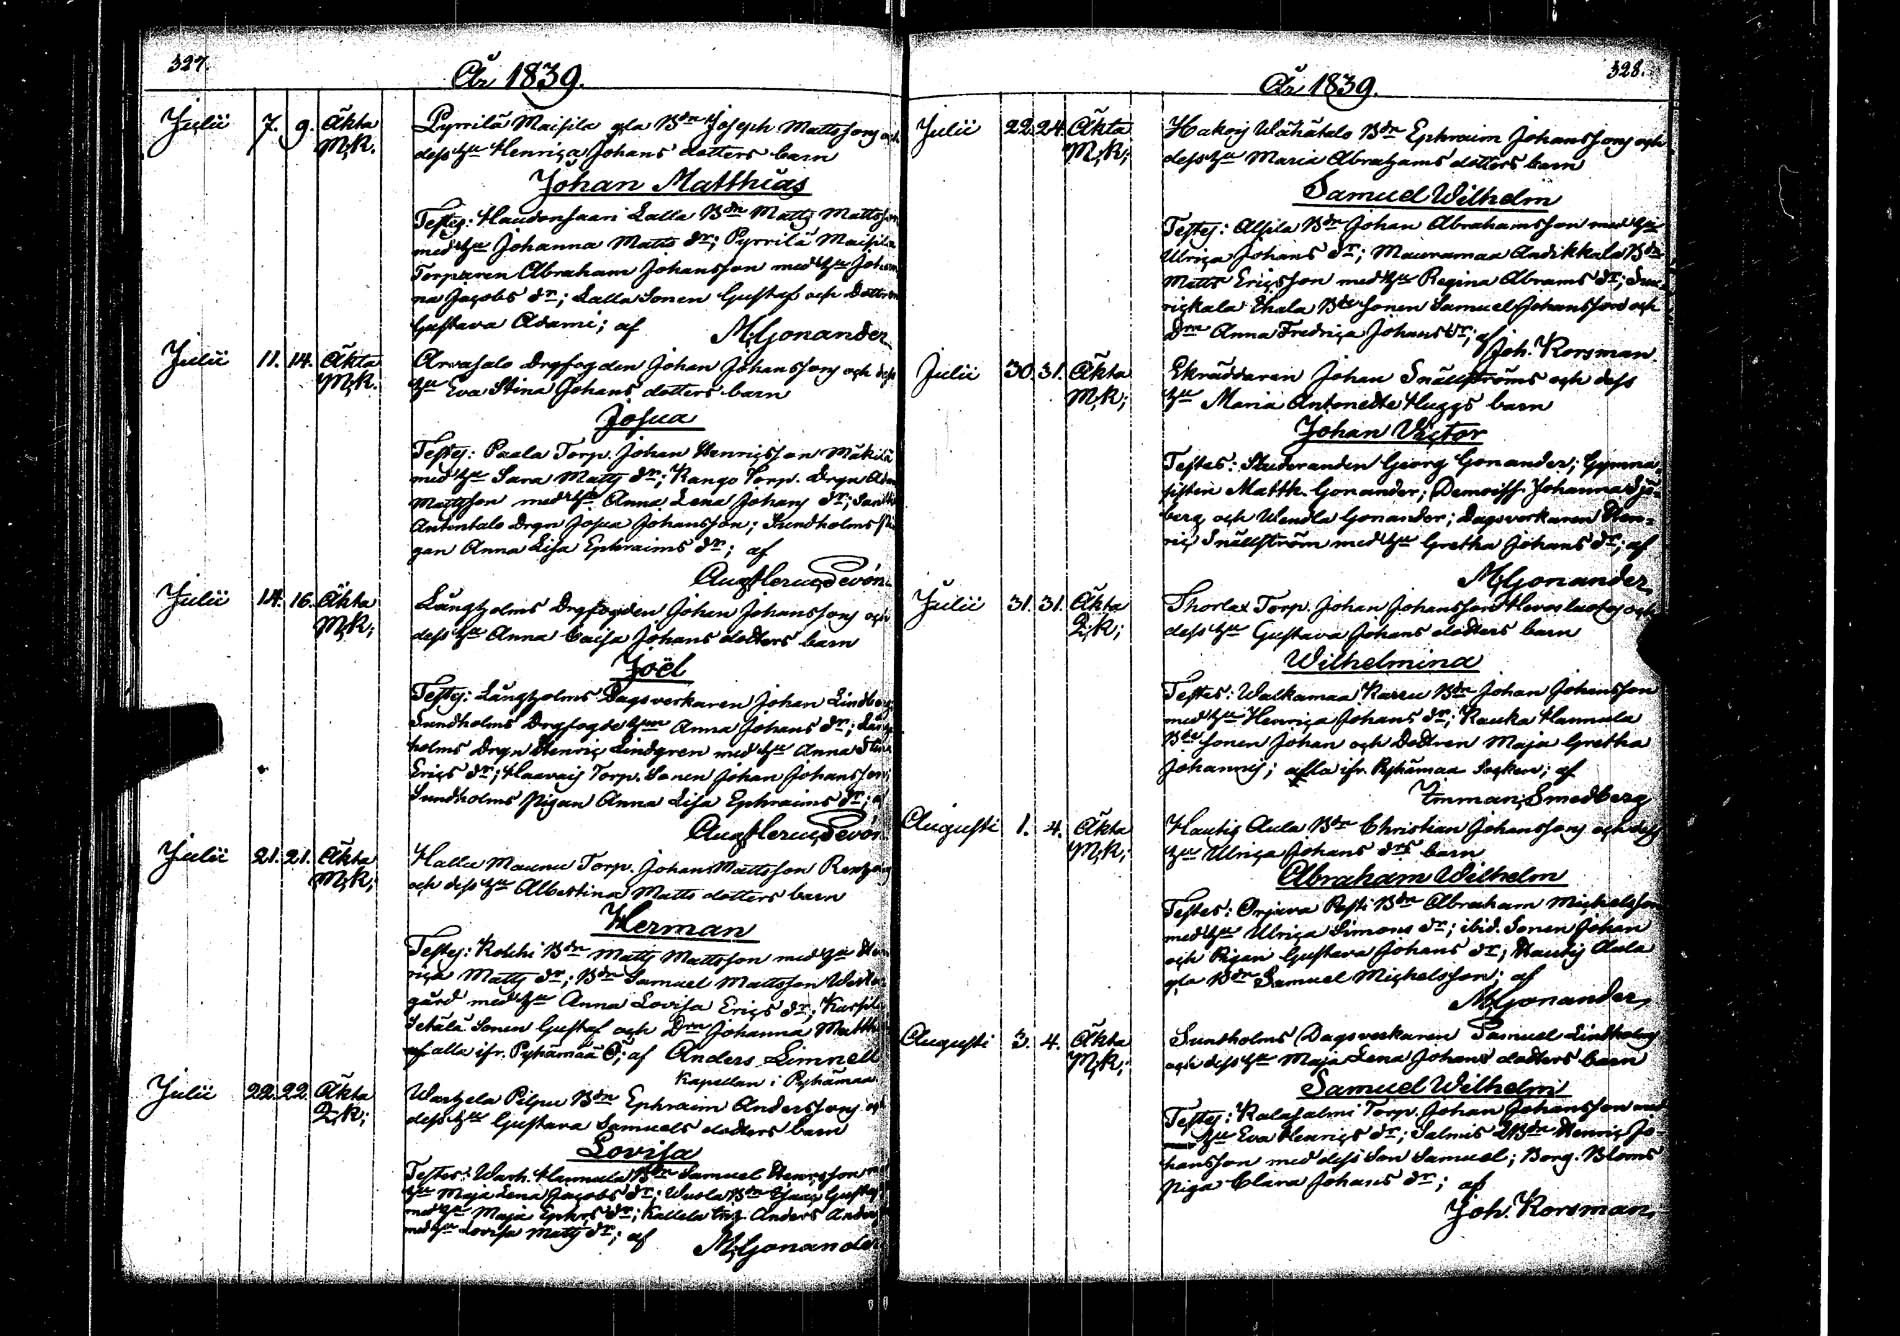 327.
År 1839.
Julii 7. 9. Äkta Pyrrilä Maisila gla Bdn Joseph Mattssons och
M,K. dess hu Henrica Johans dotters barn
Johan Matthias
Testes: Haudonsaari Lalla Bdn Matts Mattsson
med hu Johanna Matts dr; Pyrrilä Maisila
Torparen Abraham Johansson med hu Johan
na Jacobs dr; Lalla Sonen Gustaf och Dottren
Gustava Adami; af M. Gonander
Julii 11. 14. Äkta Arvasalo Drgfogden Johan Johanssons och dess
M,K. hu Eva Stina Johans dotters barn
Josua
Testes: Paala Torp. Johan Henricsson Mäkilä
med hu Sara Matts dr; Kango Torp. Drgn Adam
Mattsson med hu Anna Lena Johans dr;
Antintalo Drgn Josua Johansson; Sundholms Pi
gan Anna Lisa Ephraims dr; af
Aug. Herm. Levón
Julii 14. 16. Äkta Långholms Drgfogden Johan Johanssons och
M,K; dess hu Anna Caisa Johans dotters barn
Joël
Testes: Långholms Dagsverkaren Johan Lindberg;
Sundholms Drgfogde hun Anna Johans dr; Lång
holms Drgn Henric Lindgren med hu Anna Stina
Erics dr; Haavais Torp. Sonen Johan Johansson;
Sundholms Pigan Anna Lisa Ephraims dr; af
Aug. Herm. Levón
Julii 21. 21. Äkta Hallu Maunu Torp. Johan Mattsson
M,K; och dess hu Albertina Matts dotters barn
Herman
Testes: Kolehi Bdn Matts Mattsson med hu Hen
rica Matts dr; Bdn Samuel Mattsson Wester
gård med hu Anna Lovisa Erics dr;
Sonen Gustaf och Drn Johanna Matth
alla ifr. Pyhämaa Ö; af Anders Limnell
Kapellan i Pyhämaa
Julii 22. 22. Äkta Warhela Pilpu Bdn Ephraim Anderssons och
Q,K; dess hu Gustava Samuels dotters barn
Lovisa
Testes: Warh. Hannula Bdn Samuel Henricsson m
hu Maja Lena Jacobs dr; Bdn Isaac Gustafs
med hu Maja Ephrs dr; Kallela Anders Anders
med hu Lovisa Matts dr; af M. Gonander
328.
År 1839.
Julii 22. 24. Äkta Hakois Wähätalo Bdn Ephraim Johanssons och
M,K; dess hu Maria Abrahams dotters barn
Samuel Wilhelm
Testes: Alsila Bdn Johan Abrahamsson med hu
Ulrica Johans dr; Maunumaa Andikkala Bdn
Matts Ericsson med hu Regina Abrams dr;
rickala Bde Sonen Samuel Johansson och
Drn Anna Fredrica Johans dr; af Joh. Korsman.
Julii 30. 31. Äkta Skräddaren Johan Snällströms och dess
M,K; hu Maria Antonetta Huggs barn
Johan Victor
Testes: Studeranden Georg Gonander; Gymna
sisten Matth. Gonander; Demoiss. Johanna Sjö-
berg och Wendla Gonander; Dagsverkaren Hen-
ric Snällström med hu Gretha Johans dr; af
M. Gonander
Julii 31. 31. Äkta Thorlax Torp. Johan Johansson och
Q,K; dess hu Gustava Johans dotters barn
Wilhelmina
Testes: Walkamaa Karru Bdn Johan Johansson
med hu Henrica Johans dr; Kauka Hannula
Bde Sonen Johan och Dottren Maja Gretha
Johannis; alla ifr. Pyhämaa Socken; af
Imman. Smedberg
Augusti 1. 4. Äkta Hautis Aula Bdn Christian Johanssons och dess
M,K; hu Ulrica Johans drs barn
Abraham Wilhelm
Testes: Orjava Posti Bdn Abraham Michelsson
med hu Ulrica Simons dr; ibid. Sonen Johan
och Pigan Gustava Johans dr; Hautis Aula
gla Bdn Samuel Michelsson; af
M. Gonander
Augusti 3. 4. Äkta Sundholms Dagsverkaren Samuel Lindholms
M,K; och dess hu Maja Lena Johans dotters barn
Samuel Wilhelm
Testes: Kalasalmi Torp. Johan Johansson med
hu Eva Henrics dr; Salmis Bdn Henric Jo-
hansson med dess Son Samuel; Borg. Bloms
Piga Clara Johans dr; af
Joh. Korsman,